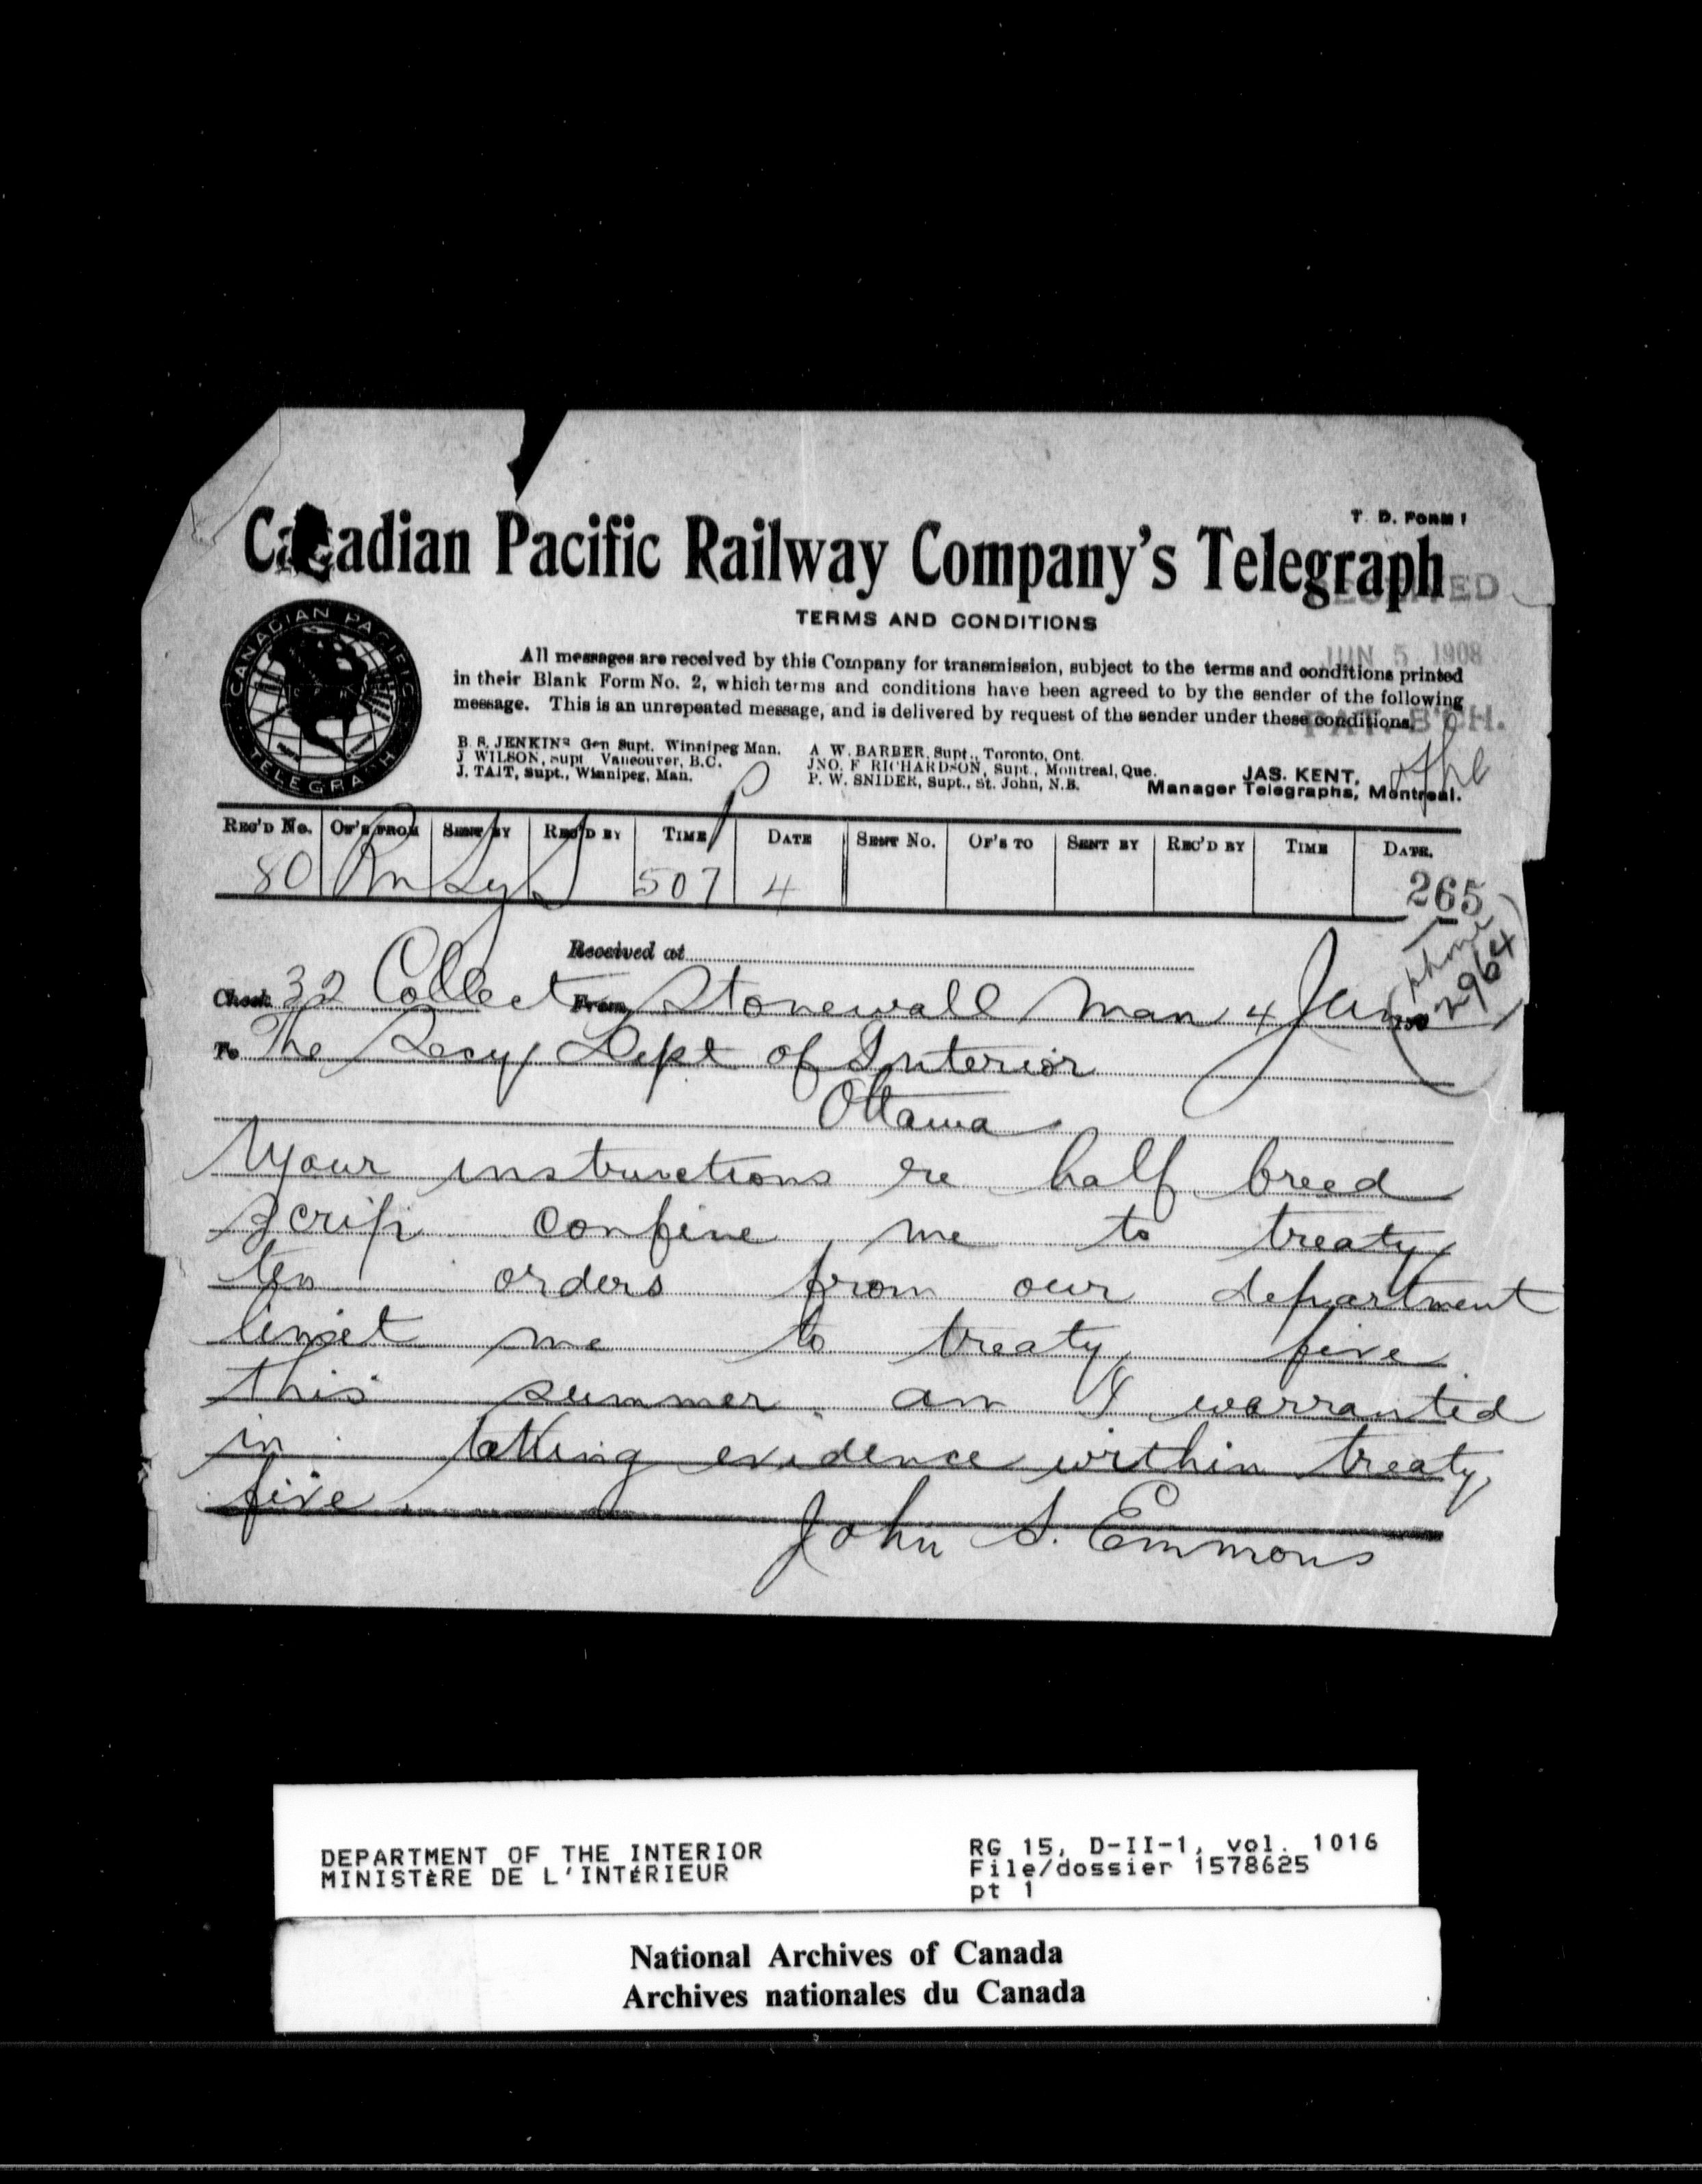 T. D. FORM 1
Canadian Pacific Railway Company's Telegraph
RECEIVED
TERMS AND CONDITIONS
CANADIAN PACIFIC
TELEGRAPH
JUN 5 1908
All messages are received by this Company for transmission, subject to the terms and conditions printed
in their Blank Form No. 2, which terms and conditions have been agreed to by the sender of the following
message. This is an unrepeated message, and is delivered by request of the sender under these conditions.
PAT. B'CH.
B. S. JENKINS Gen Supt. Winnipeg Man.
J WILSON, Supt Vancouver, B.C.
J. TAIT, Supt., Winnipeg, Man.
A W. BARBER, Supt., Toronto, Ont.
JNO. F RICHARDSON, Supt., Montreal, Que.
P. W. SNIDER, Supt., St. John, N.B.
JAS. KENT,
Manager Telegraphs, Montreal.
REC'D No. OF'S FROM SENT BY REC'D BY TIME DATE SENT No. OF'S TO SENT BY REC'D BY TIME DATE.
80 507 4
265
phone
2964
Received at
Check 32 Collect From Stonewall Man 4 Jun 190
To The Secy Dept of Interior
Ottawa
Your instructions re half breed
scrip confine me to treaty
ten orders from our department
limit me to treaty five
this summer. am I warranted
in taking evidence within treaty
five.
John S. Emmons
DEPARTMENT OF THE INTERIOR
MINISTÈRE DE L'INTÉRIEUR
RG 15, D-II-1, vol. 1016
File/dossier 1578625
pt 1
National Archives of Canada
Archives nationales du Canada